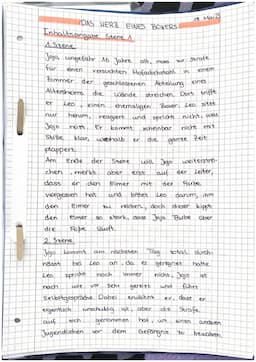 DAS HERZ EINES BOXERS
Inhaltsangabe Szene 1
1. Szene
Jojo, ungefähr 16 Jahre alt, muss zur Strafe
für einen versuchten Mofadiebstahl in einem
Zimmer der geschlossenen Abteilung eines
Altersheims die Wände streichen. Dort trifft
er Leo, einen ehemaligen Boxer. Leo sitzt
nur herum, reagiert und spricht nicht, was
Jojo nervt. Er kommt scheinbar nicht mit
Stille klar, weshalb er die ganze Zeit
plappert.
Am Ende der Szene will Jojo weiterstrei-
chen, merkt aber erst auf der Leiter,
dass er den Eimer mit der Farbe
vergessen hat und bittet Leo darum, ihm
den Eimer zu reichen, doch dieser kippt
den Eimer so stark, dass Jojo Farbe über
die Füße läuft.
2. Szene
Jojo kommt am nächsten Tag total durch-
nässt bei Leo an, da es geregnet hatte.
Leo spricht noch immer nicht, Jojo ist
nach wie vor sehr gereizt und führt
Selbstgespräche. Dabei erwähnt er, dass er
eigentlich unschuldig ist, aber die Strafe
auf sich genommen hat, um einen anderen
Jugendlichen vor dem Gefängnis zu bewahren